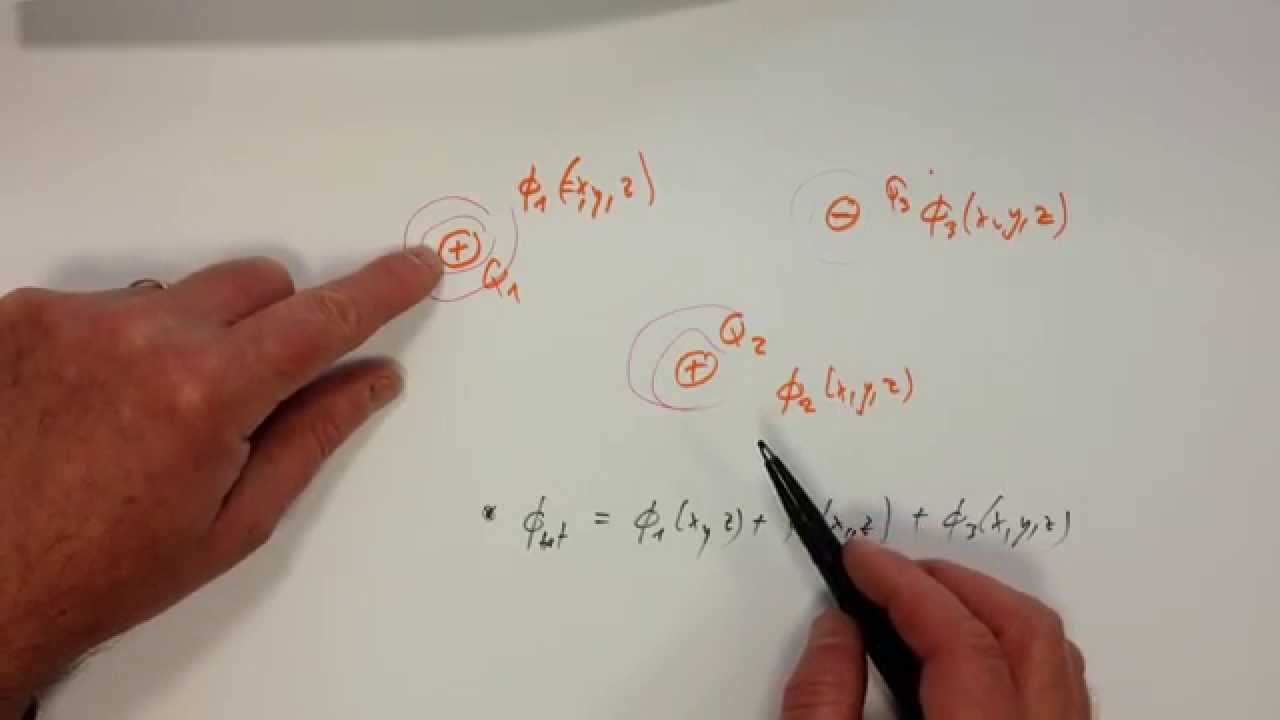 ϕ₁(x,y,z)
Q₃ ϕ₃(x,y,z)
Q₁
Q₂
ϕ₂(x,y,z)
ϕtot = ϕ₁(x,y z) + (x,y,z) + ϕ₃(x,y,z)